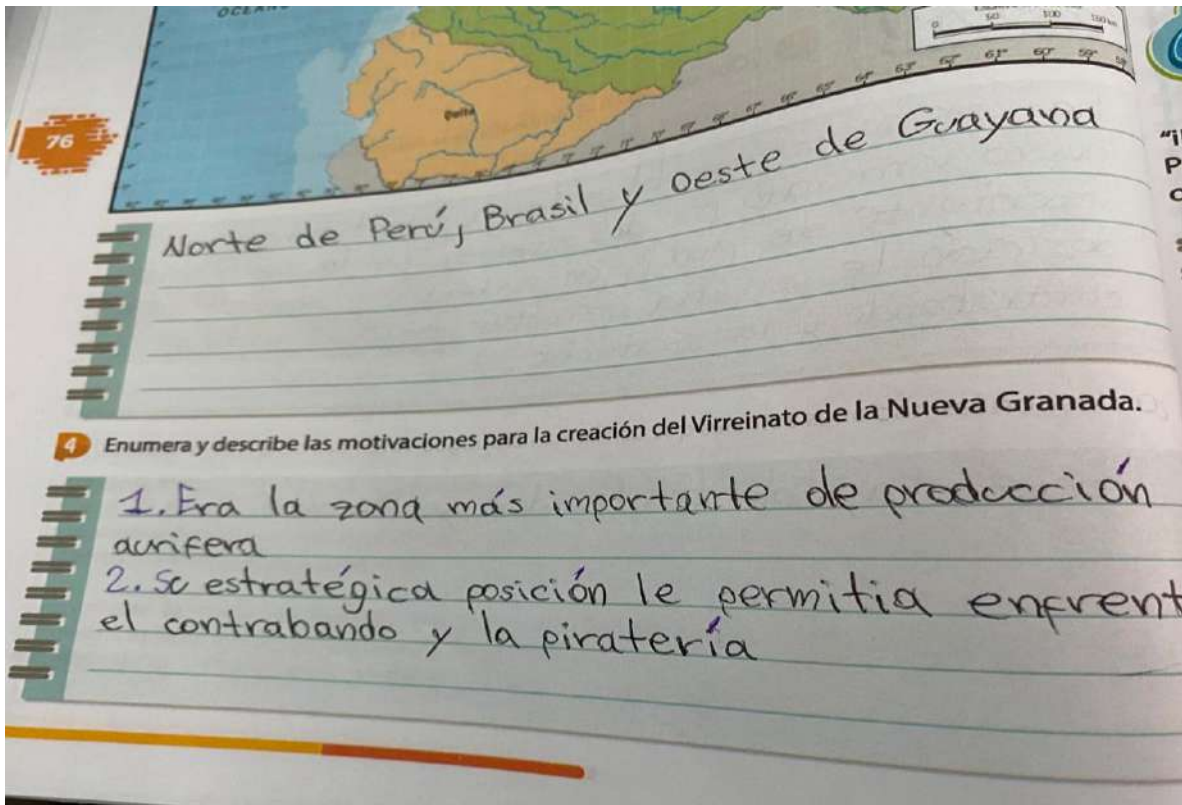 OCEAN
0 50 100 150 km
63° 62° 61° 60° 59°
Quito
76
Norte de Perú, Brasil y oeste de Guayana
"i
P
4 Enumera y describe las motivaciones para la creación del Virreinato de la Nueva Granada.
1. Era la zona más importante de producción
aurifera
2. Su estratégica posición le permitia enfrent
el contrabando y la piratería